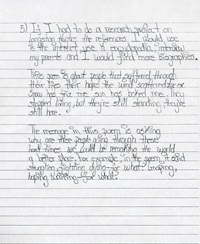 5) If I had to do a research project on
Langston Hughes the references I would use
is the internet, use a encyclopedia, interview
my parents and I would find more Biographies.
This poem is about people that suffered through
their life their hopes the wind scattered
snow has the sun has baked me. They
stopped living, but they're still standing they're
still here.
The message in this poem is asking
why are these people going through these
hard times we could be remaking the world
a better place. For example, in the poem, it said
struggling, fighting, dying for what? Groping,
hoping, waiting for what?